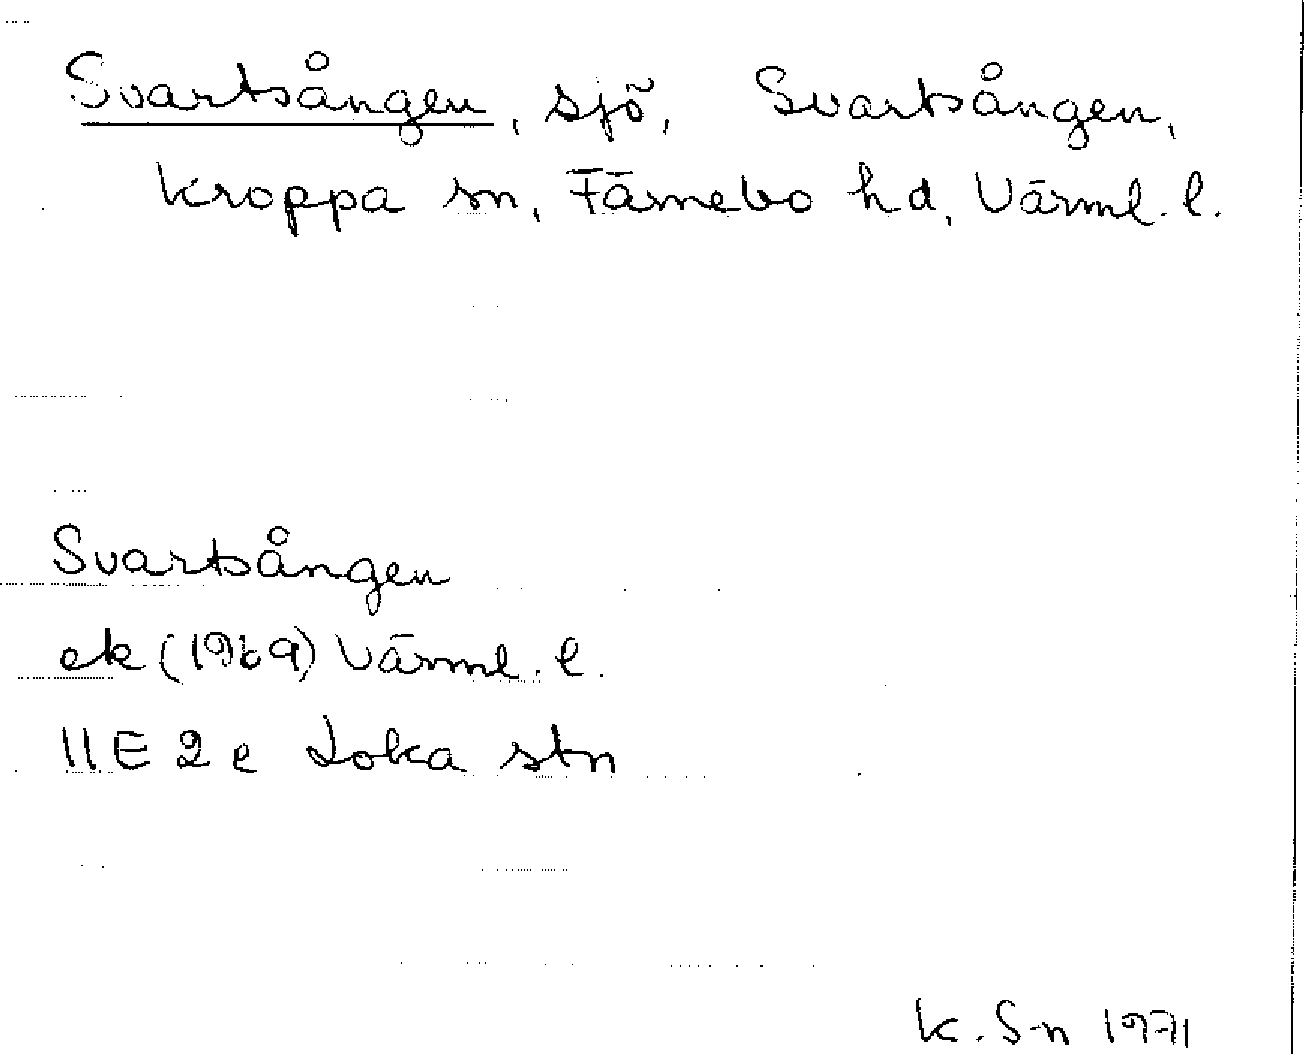 Svartsången, sjö, Svartsången,
Kroppa sn, Färnebo hd, Värml. l.
Svartsången
ek (1969) Värml. l.
11E 2e Loka stn
K. S-n 1971